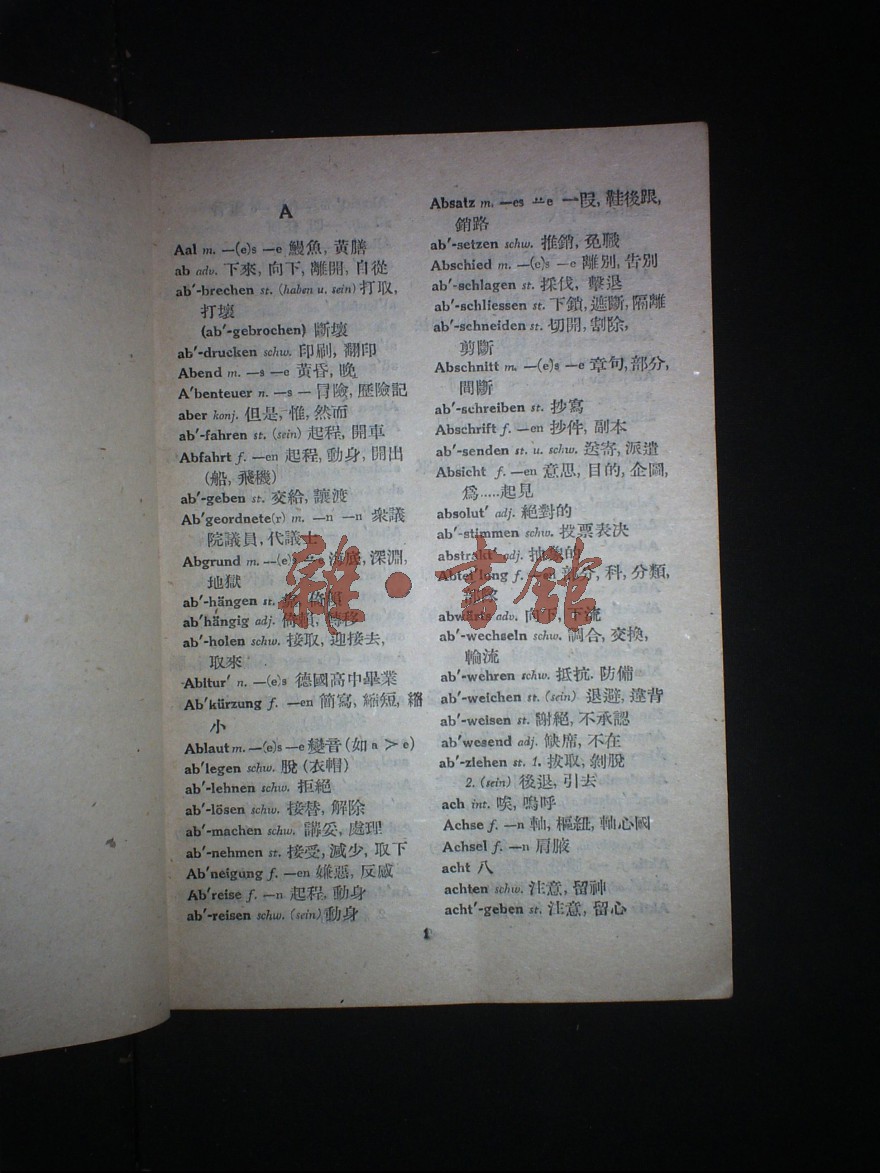 A
Aal m. —(e)s —e 鰻魚, 黃膳
ab adv. 下來, 向下, 離開, 自從
ab′-brechen st. (haben u. sein) 打取,
打壞
(ab′-gebrochen) 斷壞
ab′-drucken schw. 印刷, 翻印
Abend m. —s —e 黃昏, 晚
A′benteuer n. —s — 冒險, 歷險記
aber konj. 但是, 惟, 然而
ab′-fahren st. (sein) 起程, 開車
Abfahrt f. —en 起程, 動身, 開出
(船, 飛機)
ab′-geben st. 交給, 讓渡
Ab′geordnete(r) m. —n —n 衆議
院議員, 代議士
Abgrund m. —(e)s ⸚e 海底, 深淵,
地獄
ab′-hängen st. 倚賴
ab′hängig adj.
ab′-holen schw. 接取, 迎接去,
取來
Abitur′ n. —(e)s 德國高中畢業
Ab′kürzung f. —en 簡寫, 縮短, 縮
小
Ablaut m. —(e)s —e 變音 (如 a > e)
ab′legen schw. 脫 (衣帽)
ab′-lehnen schw. 拒絕
ab′-lösen schw. 接替, 解除
ab′-machen schw. 講妥, 處理
ab′-nehmen st. 接受, 減少, 取下
Ab′neigung f. —en 嫌惡, 反感
Ab′reise f. —n 起程, 動身
ab′-reisen schw. (sein) 動身
Absatz m. —es ⸚e 一段, 鞋後跟,
銷路
ab′-setzen schw. 推銷, 免職
Abschied m. —(e)s —e 離別, 告別
ab′-schlagen st. 採伐, 擊退
ab′-schliessen st. 下鎖, 遮斷, 隔離
ab′-schneiden st. 切開, 割除,
剪斷
Abschnitt m. —(e)s —e 章句, 部分,
間斷
ab′-schreiben st. 抄寫
Abschrift f. —en 抄件, 副本
ab′-senden st. u. schw. 送寄, 派遣
Absicht f. —en 意思, 目的, 企圖,
爲.....起見
absolut′ adj. 絕對的
ab′-stimmen schw. 投票表決
abstrakt′ adj. 抽象的
Abtei′long f. —en 部分, 科, 分類,
abwärts adv. 向下, 下流
ab′-wechseln schw. 調合, 交換,
輪流
ab′-wehren schw. 抵抗. 防備
ab′-weichen st. (sein) 退避, 違背
ab′-weisen st. 謝絕, 不承認
ab′wesend adj. 缺席, 不在
ab′-ziehen st. 1. 拔取, 剝脫
2. (sein) 後退, 引去
ach int. 唉, 嗚呼
Achse f. —n 軸, 樞紐, 軸心國
Achsel f. —n 肩腋
acht 八
achten schw. 注意, 留神
acht′-geben st. 注意, 留心
1
雜·書館